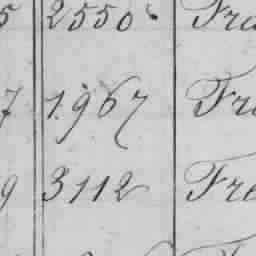 5 2550 Fra
7 1967 Fr
9 3112 Fre